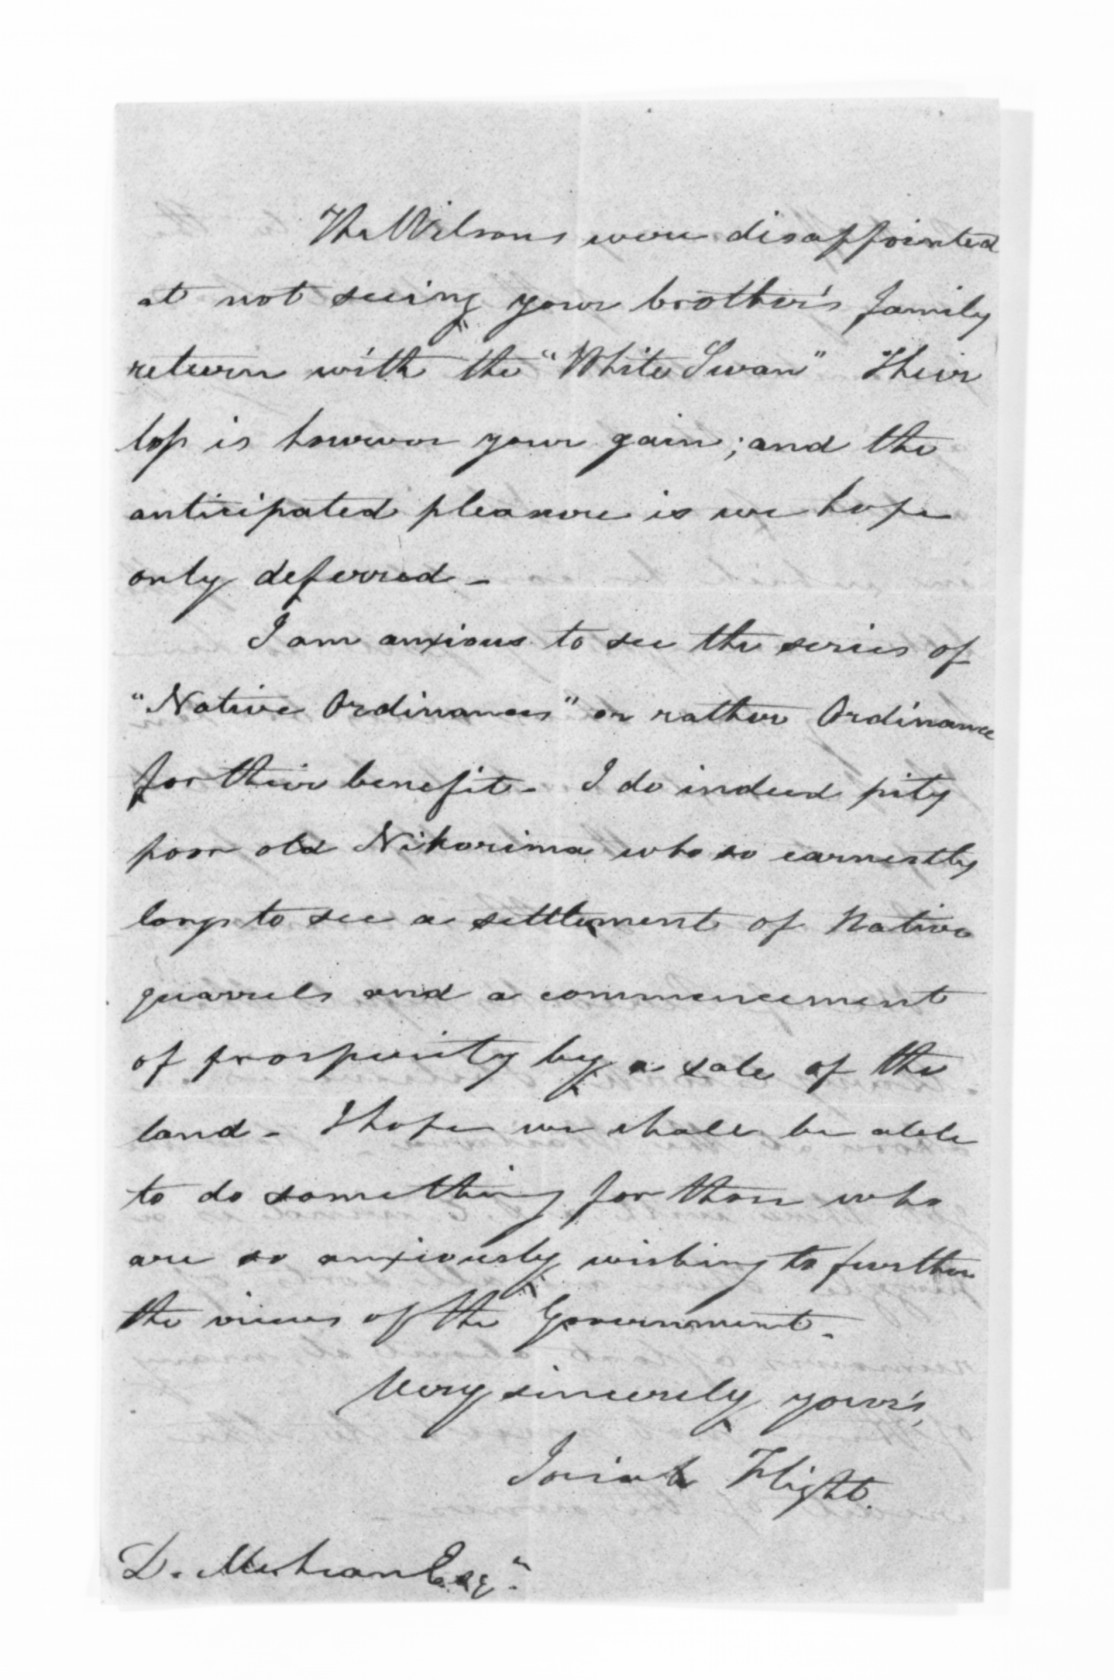 The Wilsons were disappointed
at not seeing your brother's family
return with the "White Swan" Their
loss is however your gain; and the
anticipated pleasure is we hope
only deferred -
I am anxious to see the series of
"Native Ordinances" or rather Ordinance
for their benefit - I do indeed pity
poor old Nikorima who so earnestly
longs to see a settlement of Native
quarrels and a commencement
of prosperity by a sale of the
land - I hope we shall be able
to do something for those who
are so anxiously wishing to further
the views of the Government -
Very sincerely yours,
Josiah Flight.
D. McLean Esqr.